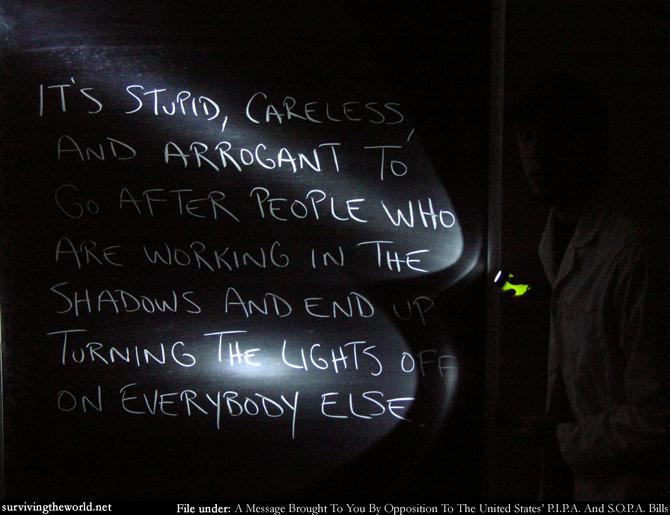 IT'S STUPID, CARELESS,
AND ARROGANT TO
GO AFTER PEOPLE WHO
ARE WORKING IN THE
SHADOWS AND END UP
TURNING THE LIGHTS OFF
ON EVERYBODY ELSE
survivingtheworld.net File under: A Message Brought To You By Opposition To The United States' P.I.P.A. And S.O.P.A. Bills